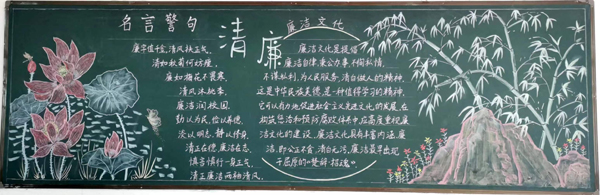 名言警句
廉字值千金,清风扶正气。
清如秋菊何妨瘦,
廉如梅花不畏寒。
清风沐杏李,
廉洁润校园。
勤以为民,俭以养德。
淡以明志,静以修身。
清正在德,廉洁在志。
慎言慎行一身正气,
清正廉洁两袖清风。
清廉
廉洁文化
廉洁文化是提倡
廉洁自律,秉公办事,不徇私情、
不谋私利,为人民服务,清白做人的精神,
这是中华民族美德,是一种值得学习的精神,
它可以有力地促进社会主义先进文化的发展,在
构筑惩治和预防腐败体系中,应高度重视廉
洁文化的建设。廉洁文化具有丰富内涵,廉
洁,即公正不贪,清白无污,廉洁最早出现
于屈原的“楚辞·招魂”